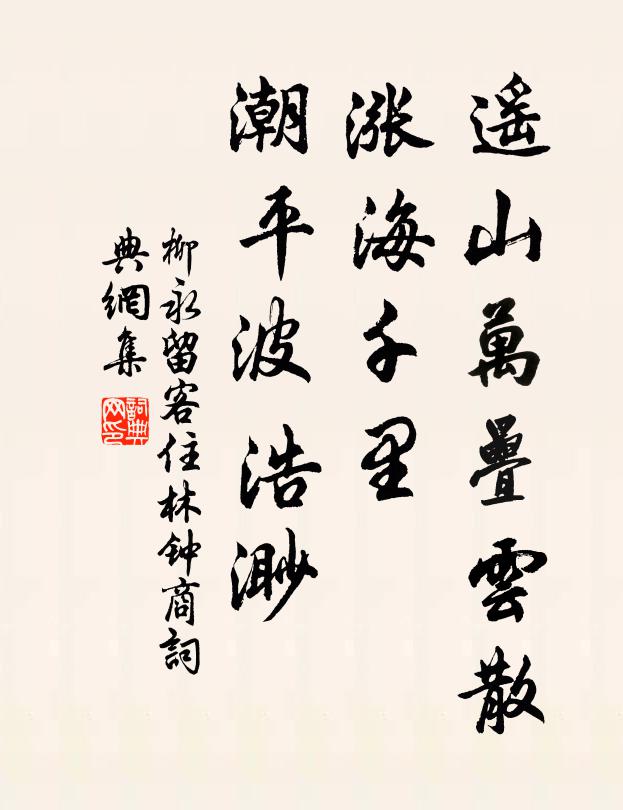 遥山萬疊雲散
漲海千里
潮平波浩渺
柳永留客住林钟商詞
典網集
詞典
网印